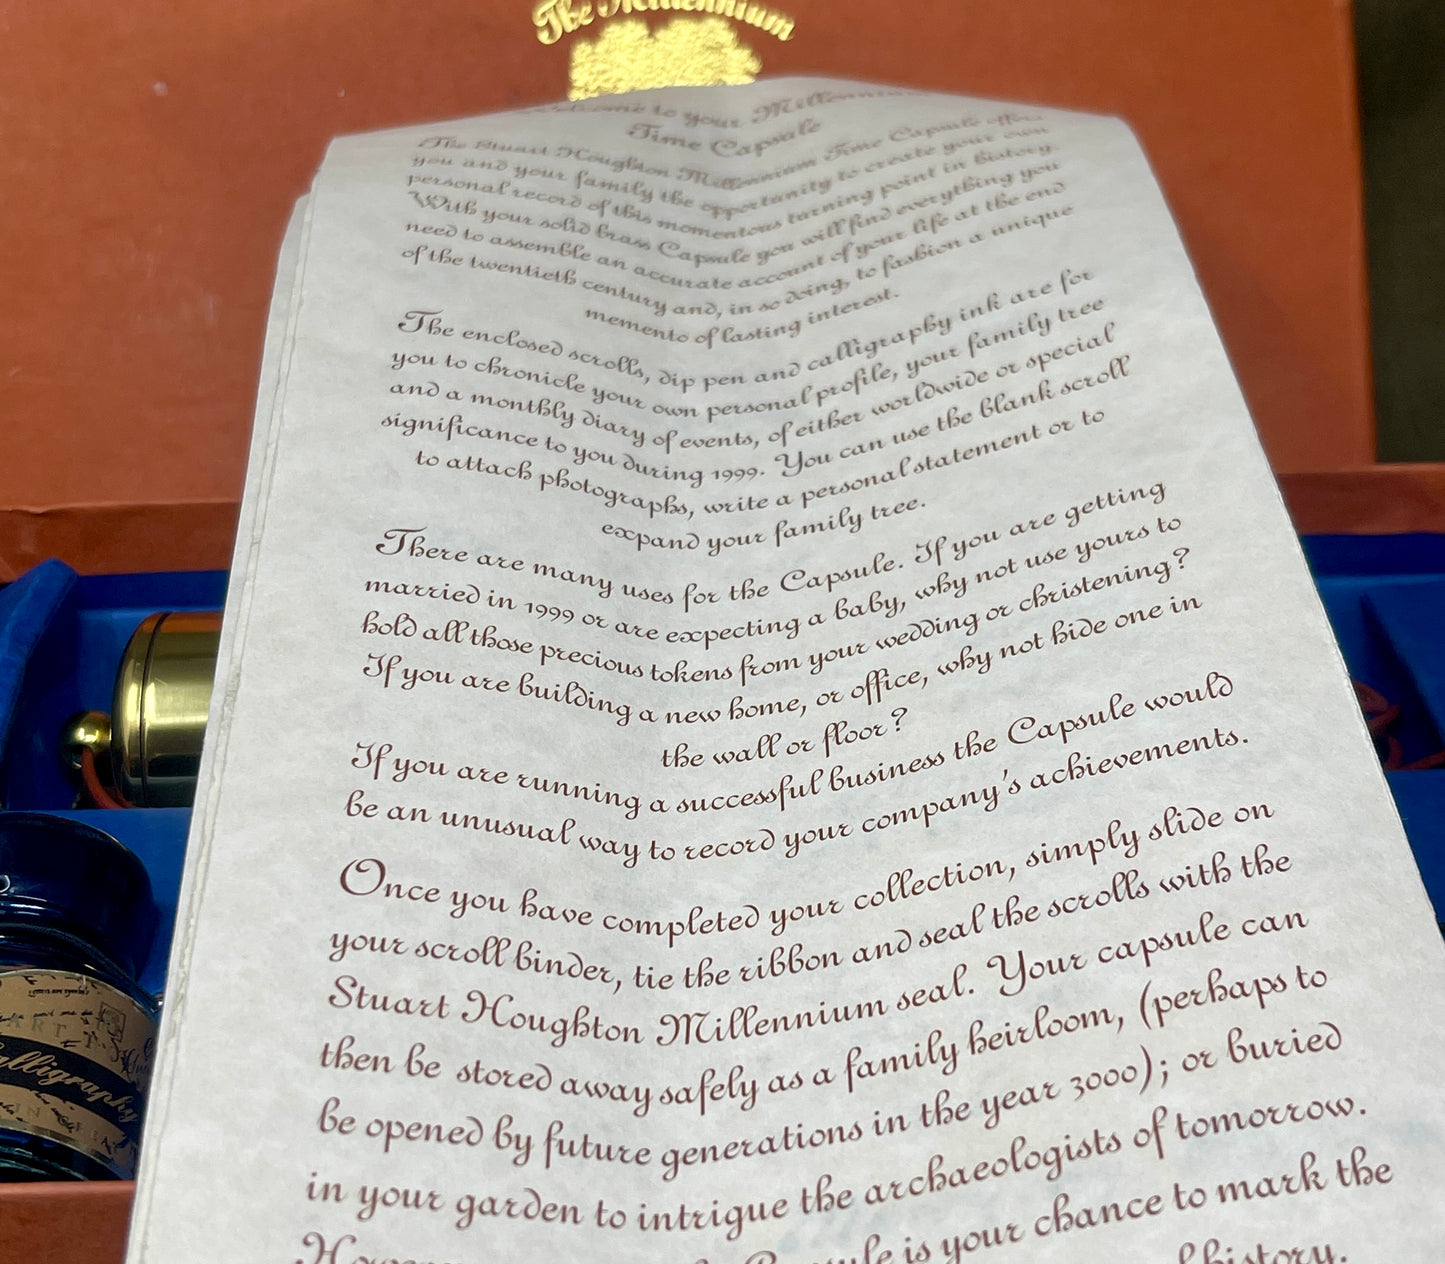 The Millennium
to your Millennium
Time Capsule
The Stuart Houghton Millennium Time Capsule offers
you and your family the opportunity to create your own
personal record of this momentous turning point in history.
With your solid brass Capsule you will find everything you
need to assemble an accurate account of your life at the end
of the twentieth century and, in so doing, to fashion a unique
memento of lasting interest.
The enclosed scrolls, dip pen and calligraphy ink are for
you to chronicle your own personal profile, your family tree
and a monthly diary of events, of either worldwide or special
significance to you during 1999. You can use the blank scroll
to attach photographs, write a personal statement or to
expand your family tree.
There are many uses for the Capsule. If you are getting
married in 1999 or are expecting a baby, why not use yours to
hold all those precious tokens from your wedding or christening?
If you are building a new home, or office, why not hide one in
the wall or floor?
If you are running a successful business the Capsule would
be an unusual way to record your company's achievements.
Once you have completed your collection, simply slide on
your scroll binder, tie the ribbon and seal the scrolls with the
Stuart Houghton Millennium seal. Your capsule can
then be stored away safely as a family heirloom, (perhaps to
be opened by future generations in the year 3000); or buried
in your garden to intrigue the archaeologists of tomorrow.
is your chance to mark the
history.
ART
Calligraphy